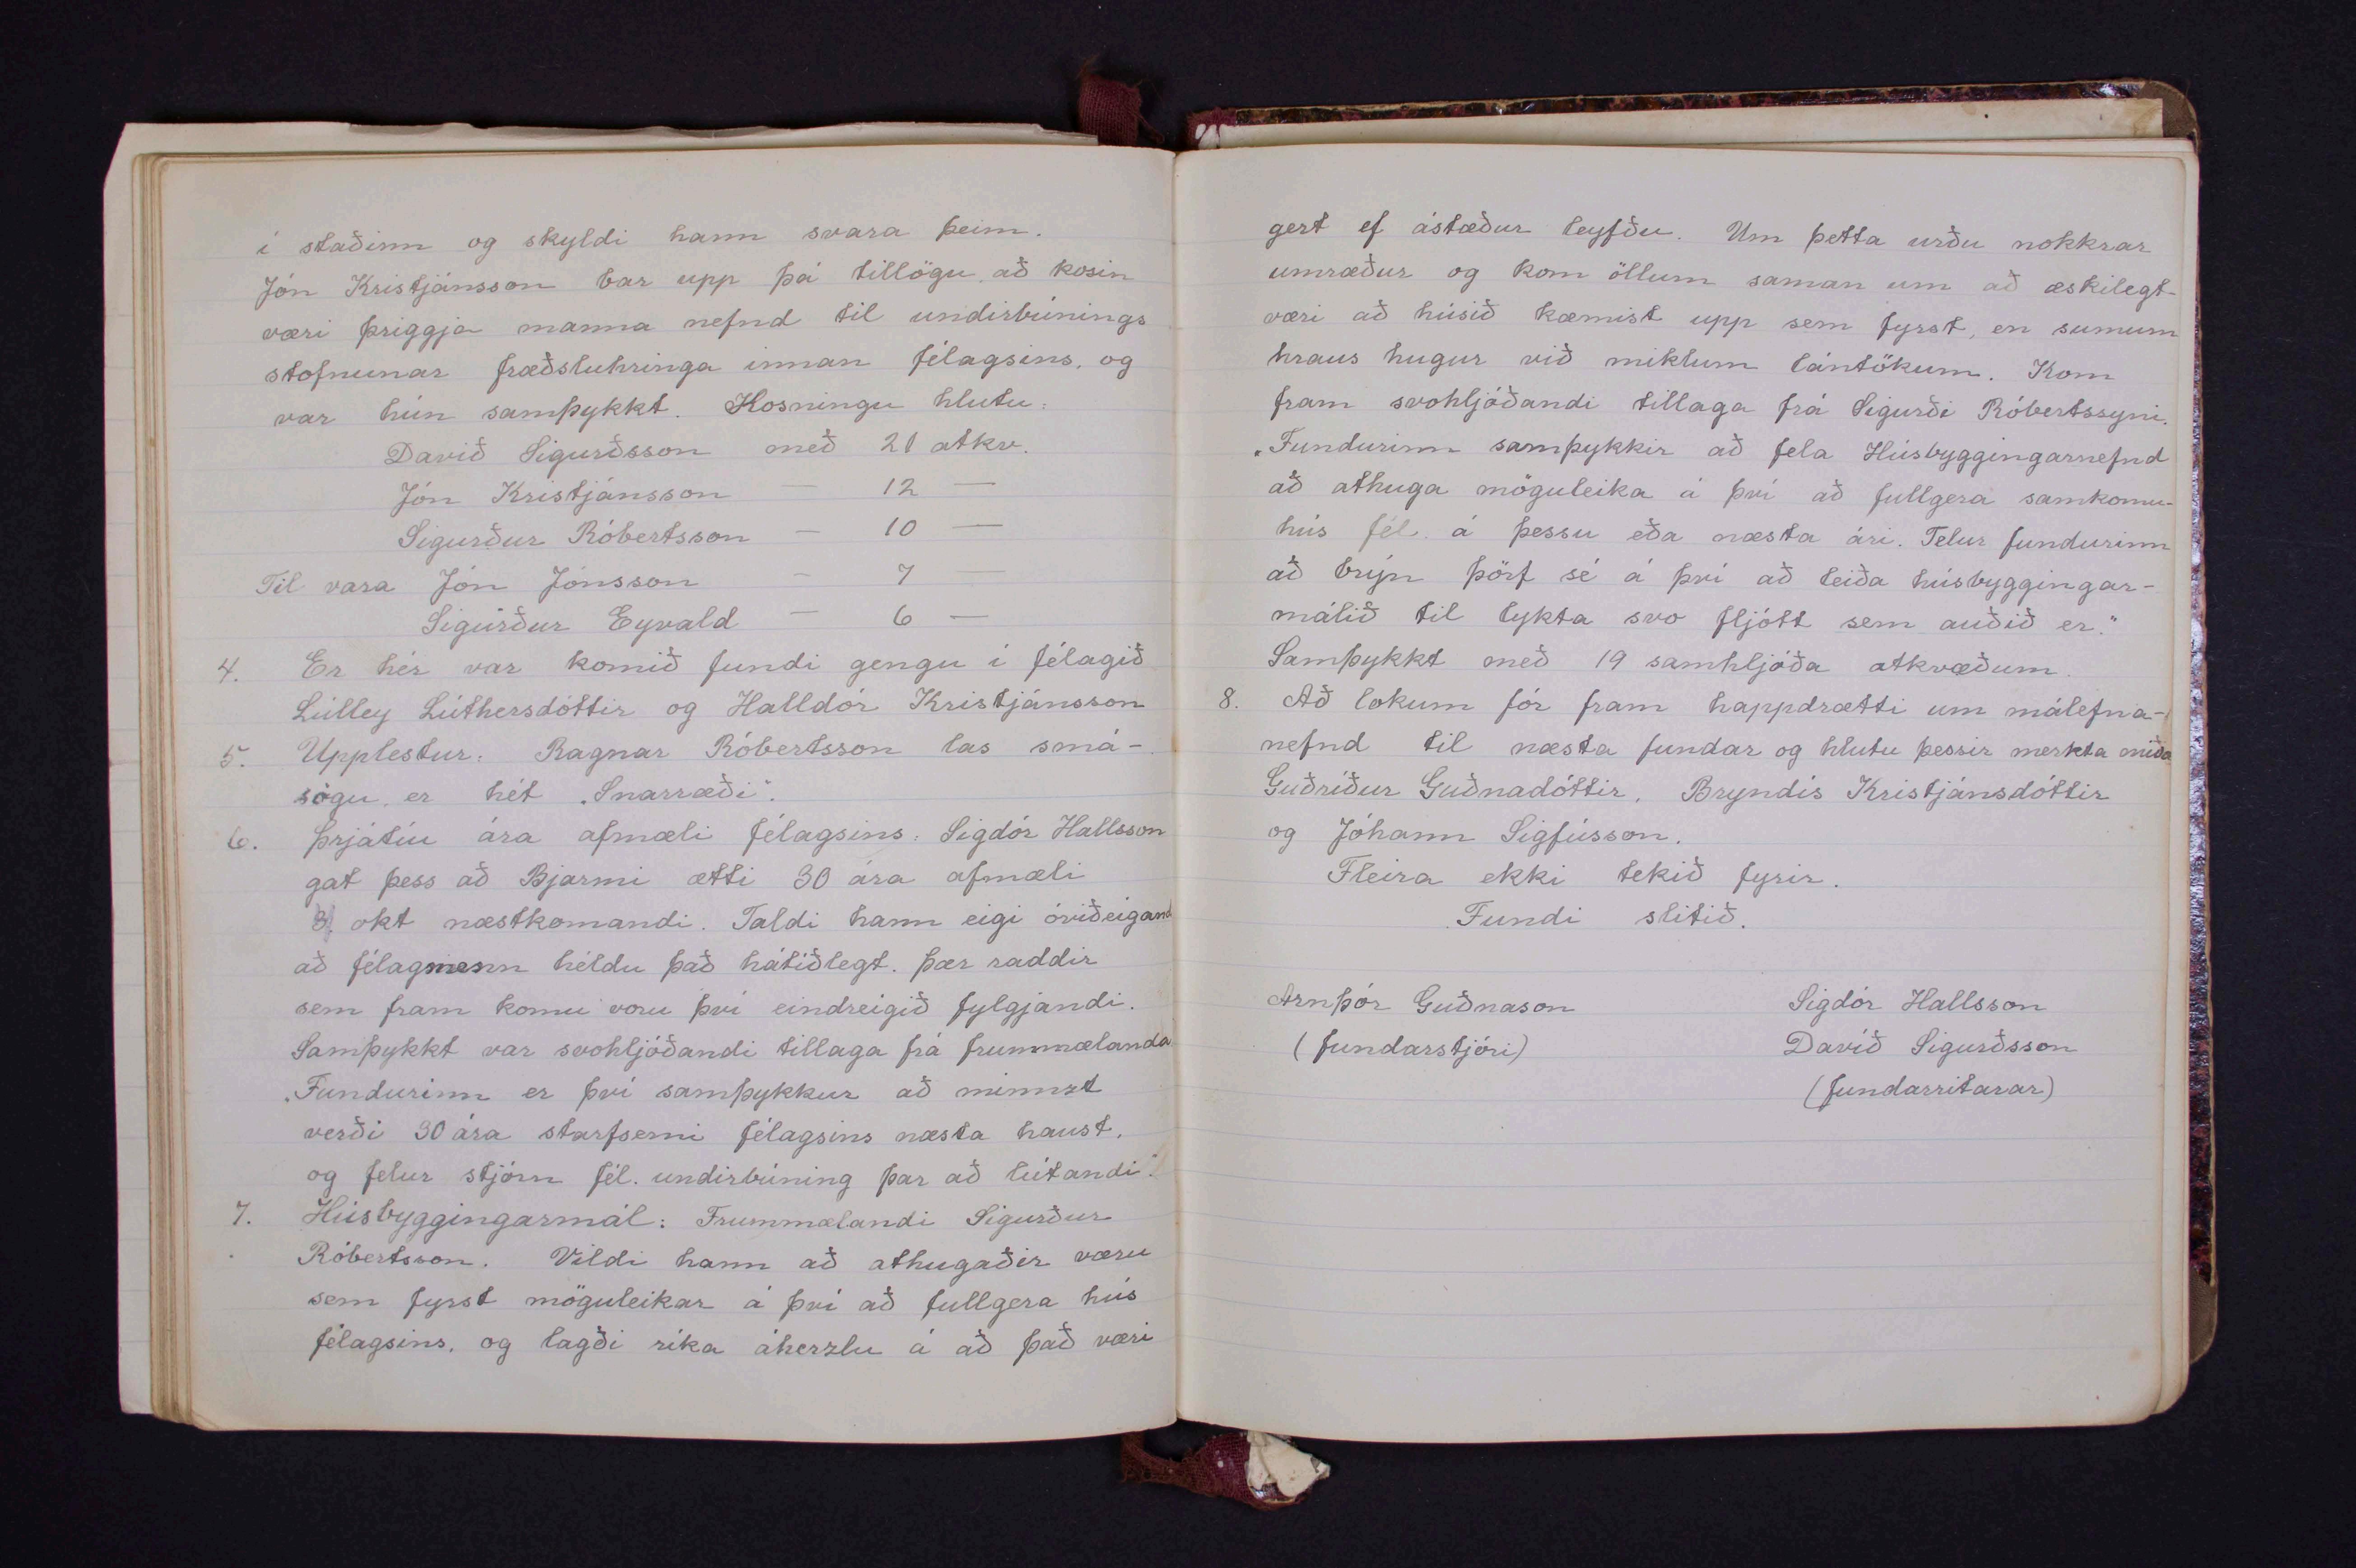 í staðinn og skyldi hann svara þeim.
Jón Kristjánsson bar upp þá tillögu að kosin
væri þriggja manna nefnd til undirbúnings
stofnunar fræðsluhringa innan félagsins, og
var hún samþykkt. Kosningu hlutu:
Davíð Sigurðsson með 21 atkv.
Jón Kristjánsson — 12 —
Sigurður Róbertsson — 10 —
Til vara Jón Jónsson — 7 —
Sigurður Eyvald — 6 —
4. Er hér var komið fundi gengu í félagið
Lúlley Lúthersdóttir og Halldór Kristjánsson
5. Upplestur: Ragnar Róbertsson las smá-
sögu, er hét „Snarræði".
6. Þrjátíu ára afmæli félagsins: Sigdór Hallsson
gat þess að Bjarmi ætti 30 ára afmæli
3. okt næstkomandi. Taldi hann eigi óviðeigand
að félagmenn héldu það hátíðlegt. Þær raddir
sem fram komu voru því eindreigið fylgjandi.
Samþykkt var svohljóðandi tillaga frá frummælanda
„Fundurinn er því samþykkur að minnst
verði 30 ára starfsemi félagsins næsta haust,
og felur stjórn fél. undirbúning þar að lútandi".
7. Húsbyggingarmál: Frummælandi Sigurður
Róbertsson. Vildi hann að athugaðir væru
sem fyrst möguleikar á því að fullgera hús
félagsins, og lagði ríka áherzlu á að það væri
gert ef ástæður leyfðu. Um þetta urðu nokkrar
umræður og kom öllum saman um að æskilegt
væri að húsið kæmist upp sem fyrst, en sumum
hraus hugur við miklum lántökum. Kom
fram svohljóðandi tillaga frá Sigurði Róbertssyni.
„Fundurinn samþykkir að fela Húsbyggingarnefnd
að athuga möguleika á því að fullgera samkomu-
hús fél. á þessu eða næsta ári. Telur fundurinn
að brýn þörf sé á því að leiða húsbyggingar-
málið til lykta svo fljótt sem auðið er."
Samþykkt með 19 samhljóða atkvæðum.
8. Að lokum fór fram happdrætti um málefna-
nefnd til næsta fundar og hlutu þessir merkta miða
Guðríður Guðnadóttir, Bryndís Kristjánsdóttir
og Jóhann Sigfússon.
Fleira ekki tekið fyrir.
Fundi slitið.
Arnþór Guðnason Sigdór Hallsson
(fundarstjóri) Davíð Sigurðsson
(fundarritarar)